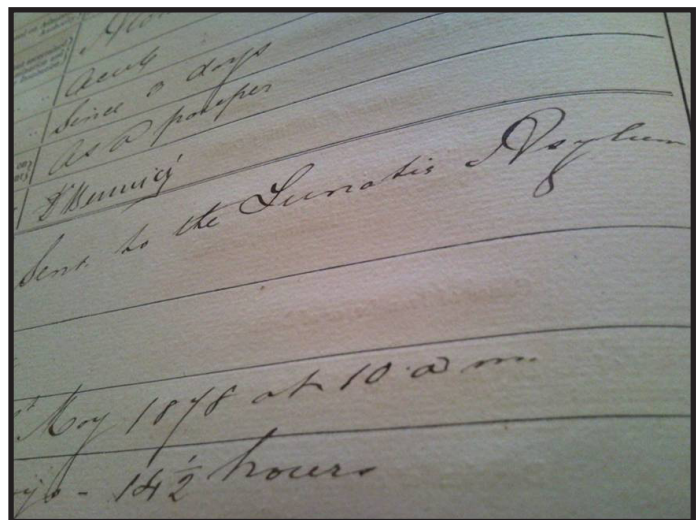 acute
Since 8 days
As a pauper
Sent to the Lunatic Asylum
May 1878 at 10 a m.
- 14 ½ hours